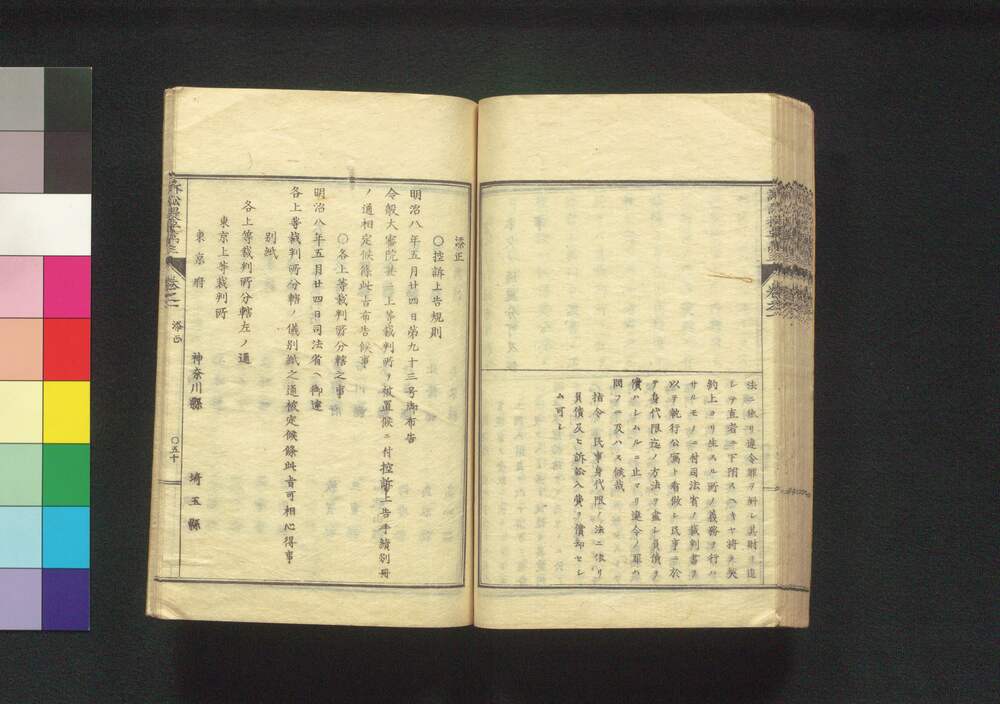 法ニ依リ違令罪ヲ斷シ其財ヲ追
シテ直者ニ下附スヘキヤ將タ契
約上ヨリ生スル所ノ義務ヲ行ハ
サルモノニ付司法省ノ裁判書ヲ
以テ執行公寫ト看做シ民事ニ於
テ身代限迄ノ方法ヲ盡シ負債ヲ
償ハシムルニ止マリ違令ノ罪ハ
問フニ及ハス候哉
指令 民事身代限ノ法ニ依リ
負債及ヒ訴訟入費ヲ償却セシ
ム可シ
〇控訴上告規則
明治八年五月廿四日第九十三号御布告
今般大審院並ニ上等裁判所ヲ被置候ニ付控訴上告手續別冊
ノ通相定候條此旨布告候事
〇各上等裁判所分轄之事
明治八年五月廿四日司法省ヘ御達
各上等裁判所分轄ノ儀別紙之通被定候條此旨可相心得事
別紙
各上等裁判所分轄左ノ通
東京上等裁判所
東京府 神奈川縣 埼玉縣
〇五十